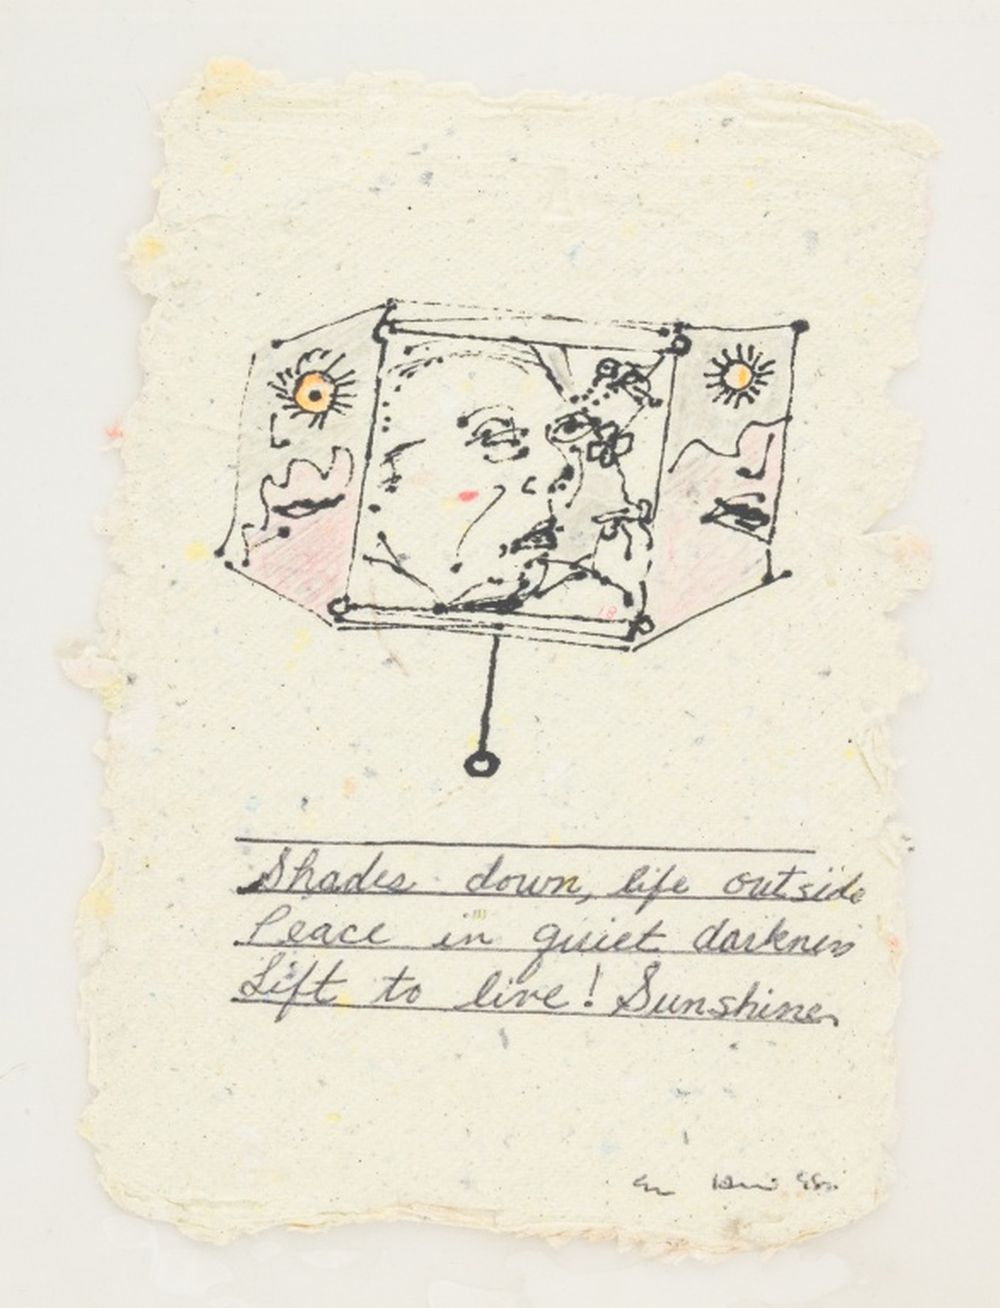 Shades down, life outside
Peace in quiet darkness
Lift to live! Sunshine